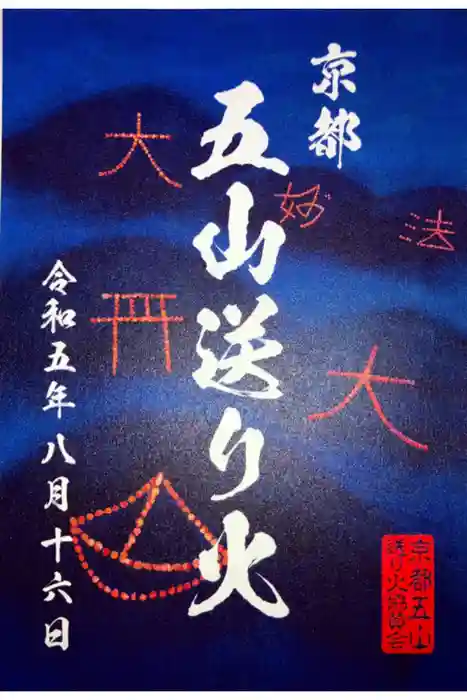 京都
五山送り火
令和五年八月十六日
大
妙
法
大
京都五山
送り火協会